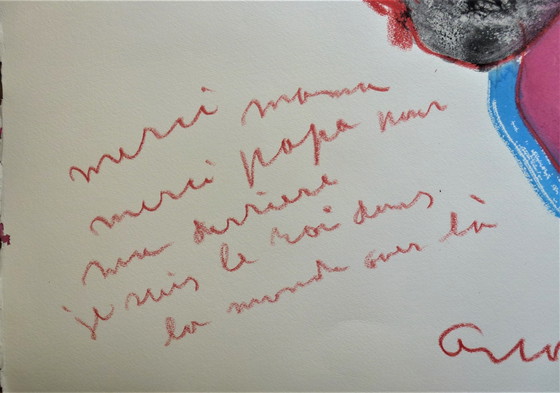 merci mama
merci papa pour
mon derriere
je suis le roi dans
la monde là